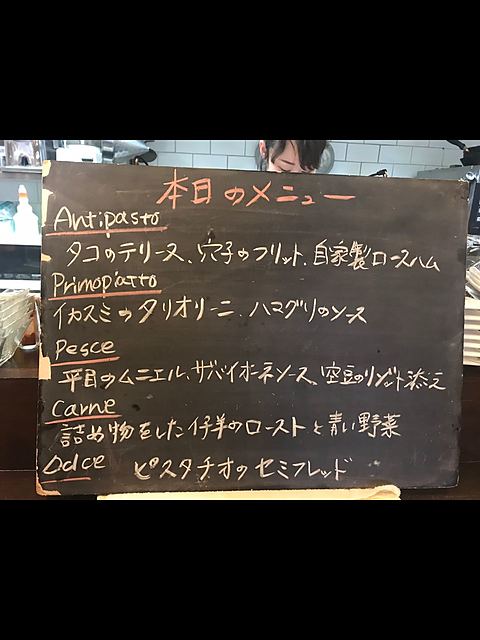 本日のメニュー
Antipasto
タコのテリーヌ、穴子のフリット、自家製ロースハム
Primopiatto
イカスミのタリオリーニ、ハマグリのソース
Pesce
平目のムニエル、ザバイオーネソース、空豆のリゾット添え
Carne
詰め物をした仔羊のローストと青い野菜
Dolce ピスタチオのセミフレッド